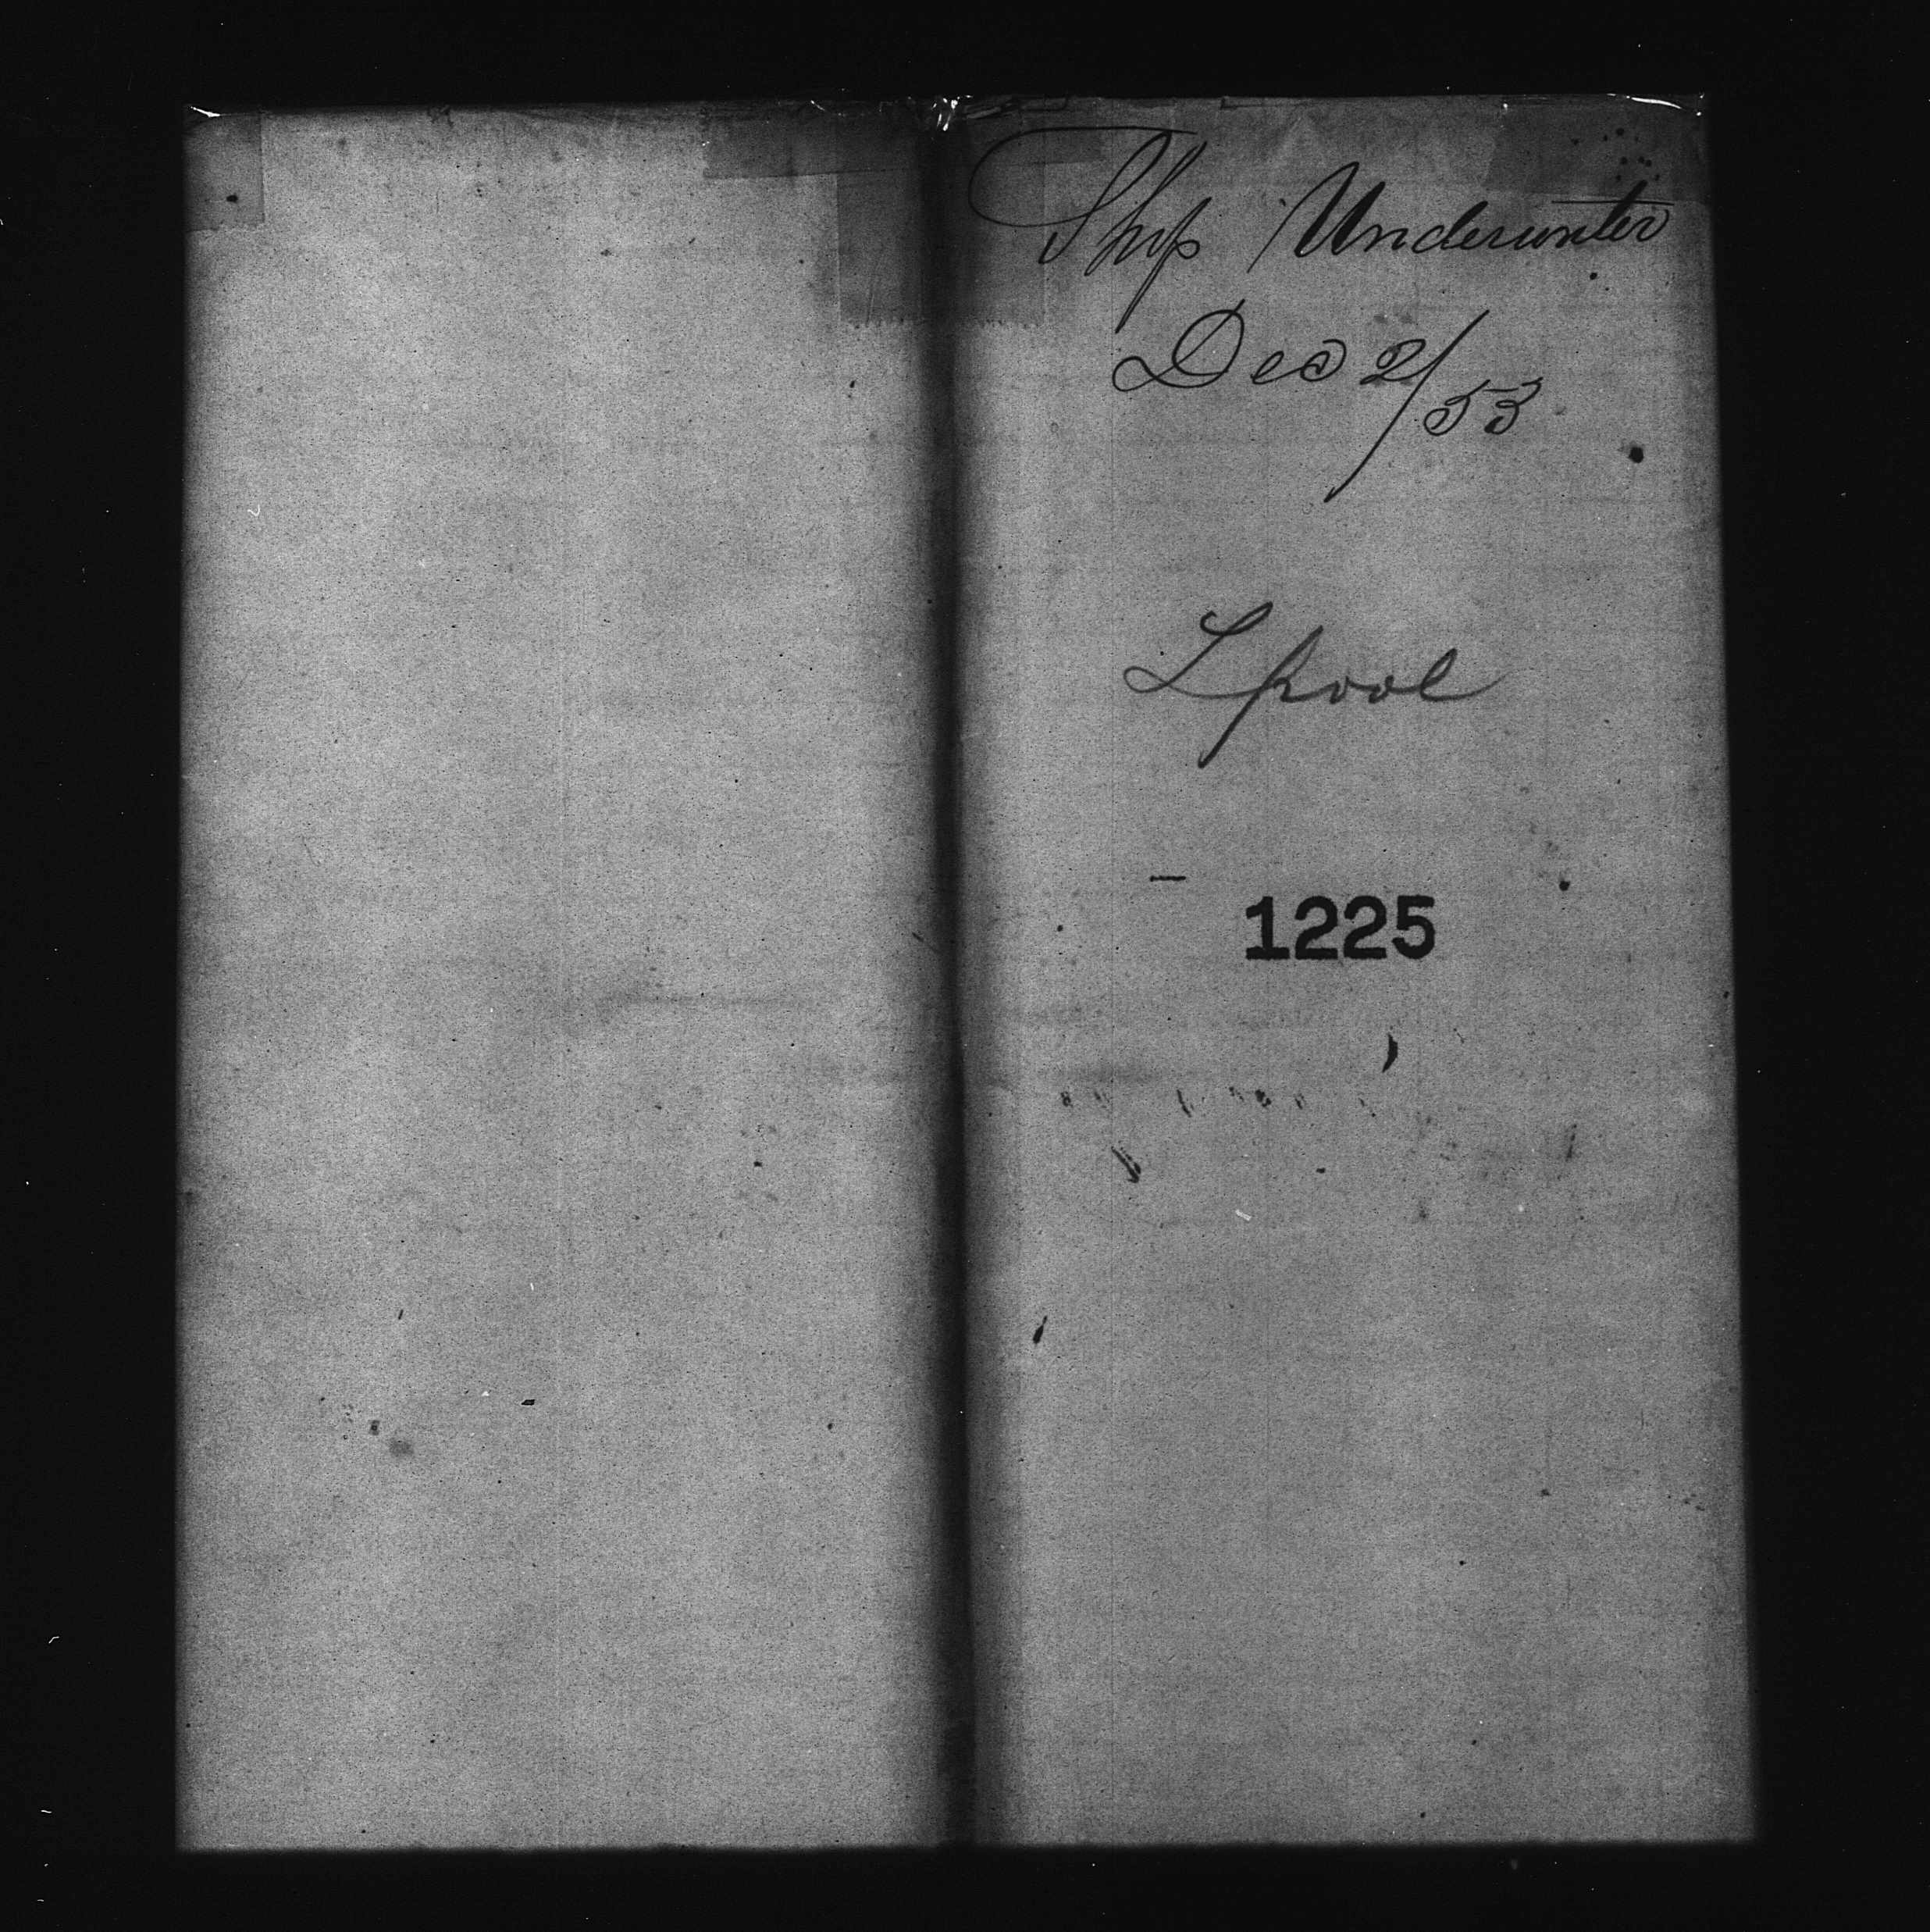 Ship Underwriter
Dec 2/53
Lpool
1225